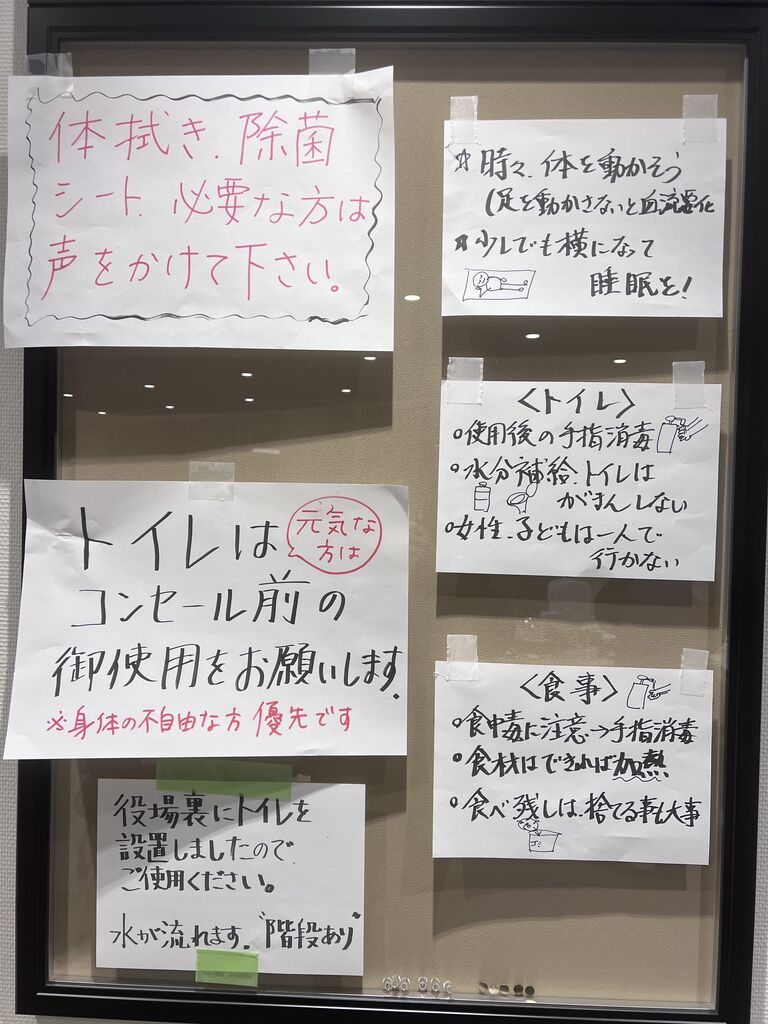 体拭き、除菌
シート、必要な方は
声をかけて下さい。
トイレは
元気な
方は
コンセール前の
御使用をお願いします。
※身体の不自由な方 優先です
役場裏にトイレを
設置しましたので
ご使用ください。
水が流れます。"階段あり"
☆時々、体を動かそう
(足を動かさないと血流悪化
☆少しでも横になって
睡眠を!
<トイレ>
○使用後の手指消毒
○水分補給、トイレは
がまんしない
○女性、子どもは一人で
行かない
<食事>
○食中毒に注意→手指消毒
○食材はできれば加熱
○食べ残しは、捨てる事も大事
ゴミ